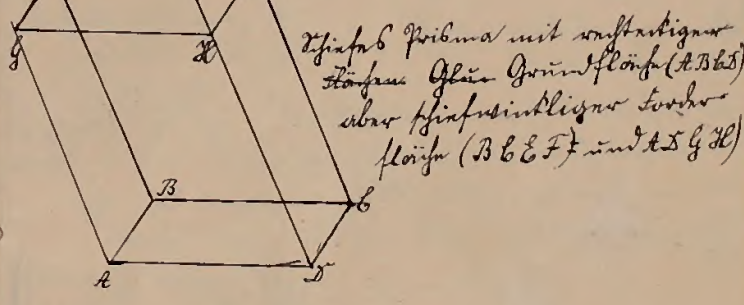 G H
Schiefes Prisma mit rechteckiger
Flächen Glur Grundfläche (ABCD)
aber schiefwinkliger Forder-
fläche (BCEF) und ADGH)
B C
A D